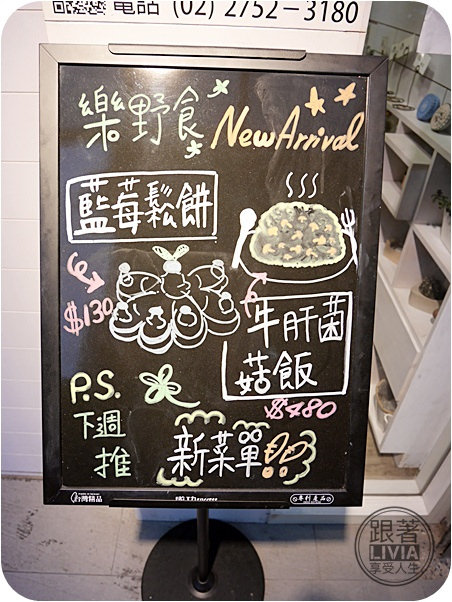 電話 (02) 2752-3180
樂野食 New Arrival
藍莓鬆餅
$130
牛肝菌
菇飯
$480
P.S.
下週
推
新菜單!!
台灣精品
專利產品
跟著
LIVIA
享受人生